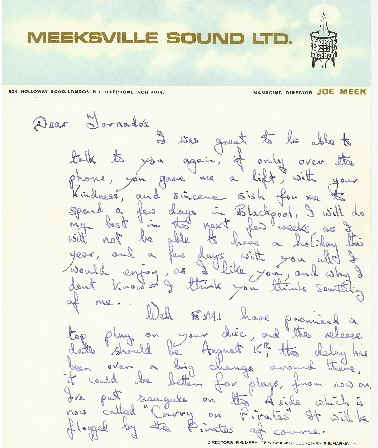 MEEKSVILLE SOUND LTD.
304 HOLLOWAY ROAD, LONDON N.7.
MANAGING DIRECTOR JOE MEEK
Dear Tornados
I was great to be able to
talk to you again, if only over the
phone, you gave me a lift, with your
kindness, and sincere wish for me to
spend a few days in Blackpool, I will do
my best in the next few weeks, as I
will not be able to have a holiday this
year, and a few days with you all I
would enjoy, as I like you, and why I
dont know I think you think something
of me..
Well E.M.I have promised a
top play on your disc, and the release
date should be August the delay has
been over a big change around there,
it could be better for plays, from now on,
Ive put seagulls on the A side which is
now called "Carry on Pirates" It will be
plugged by the Pirates of course.